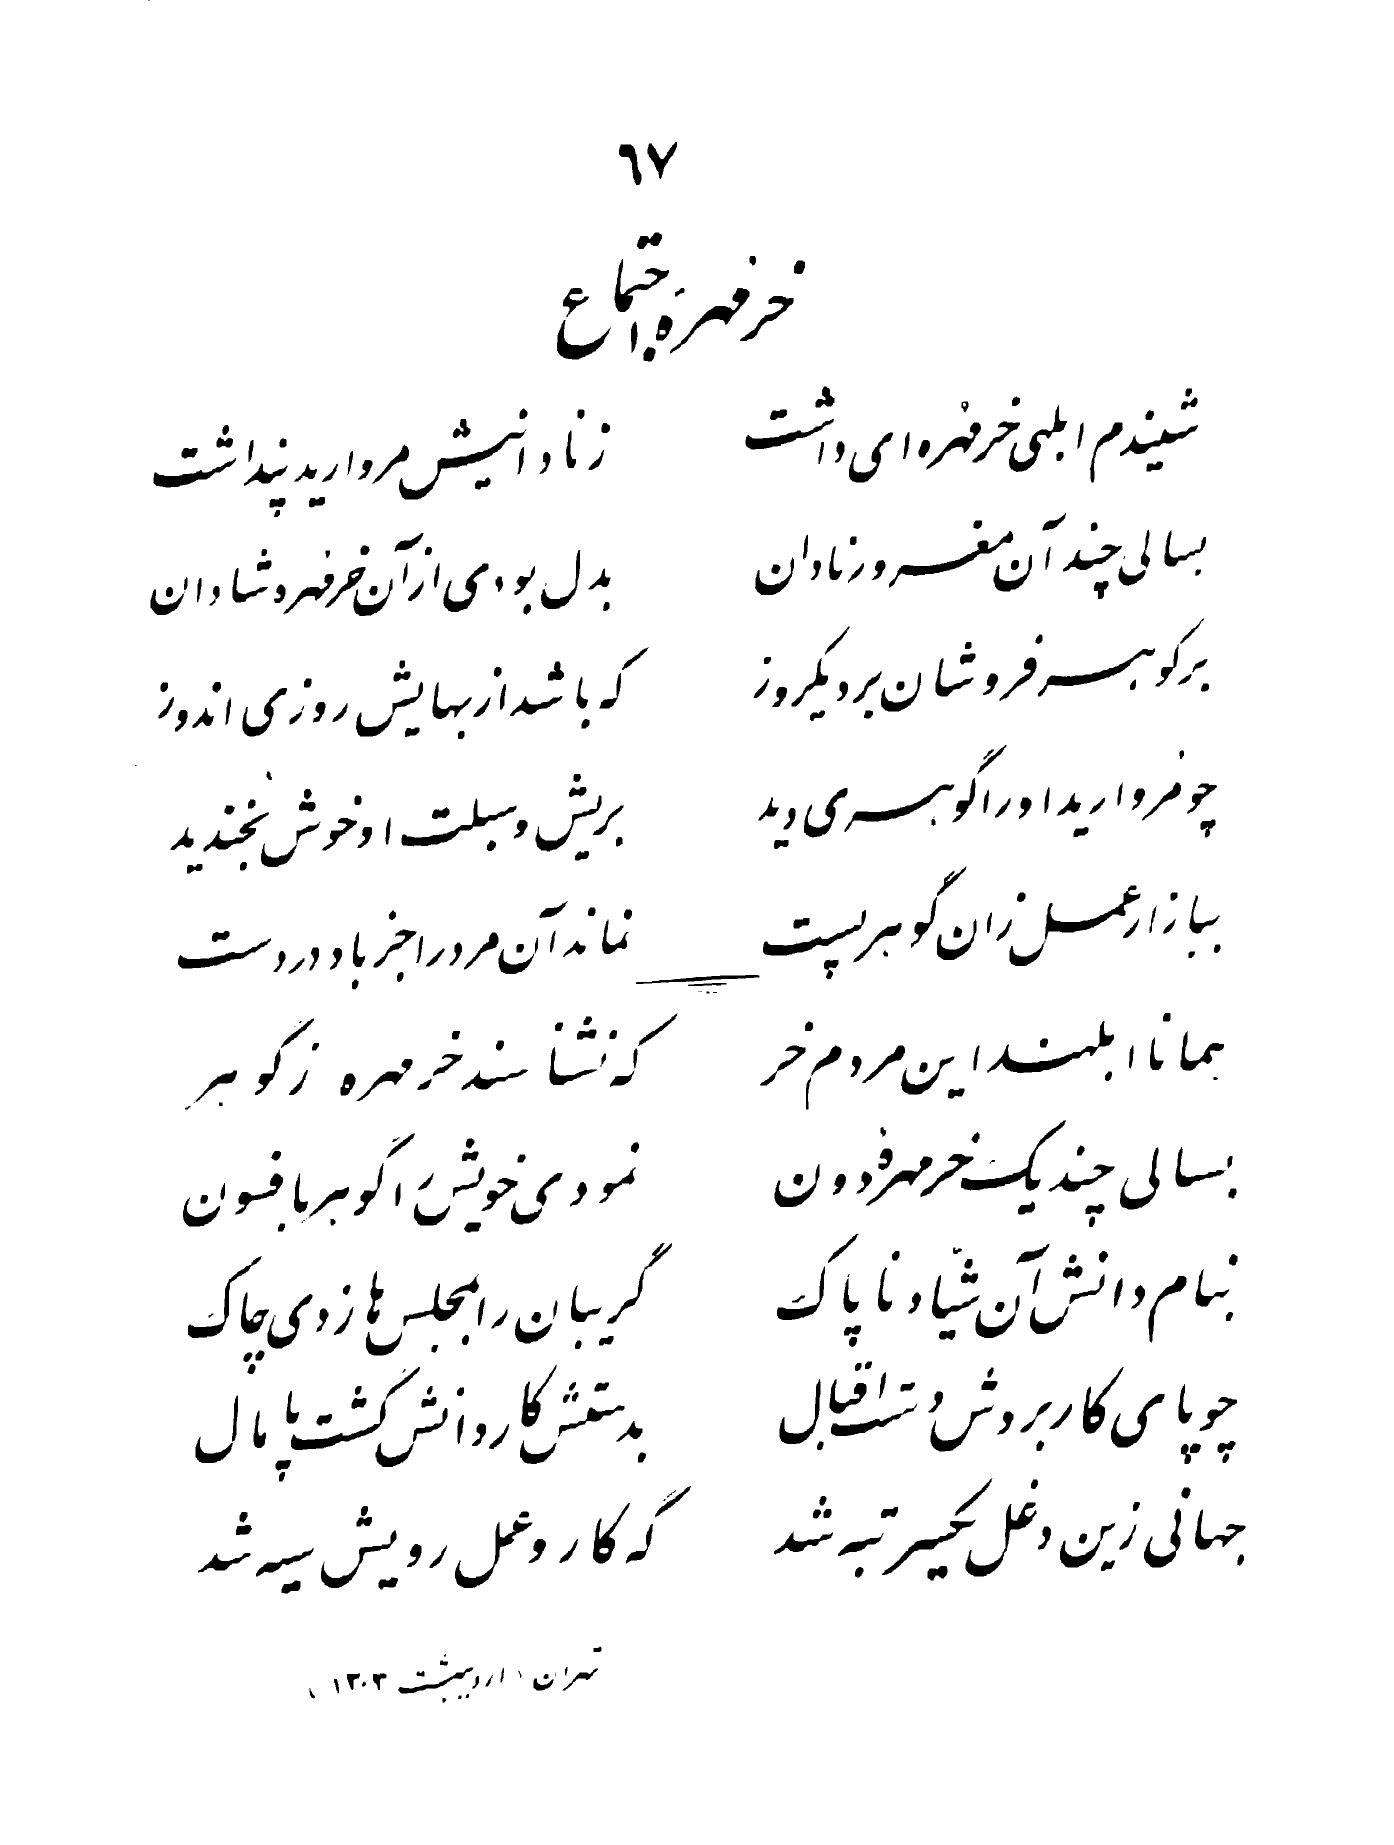 ٦٧
خرمهرهٔ اجتماع
شنیدم ابلهی خرمهره‌ای داشت ز نادانیش مروارید پنداشت
بسالی چند آن مغرور نادان بدل بودی از آن خرمهره شادان
بر گوهر فروشان برد یکروز که باشد از بهایش روزی اندوز
چو مروارید او را گوهری دید بریش و سبلت او خوش بخندید
ببازار عمل زان گوهر پست نماند آن مرد را جز باد در دست
همانا ابلهند این مردم خر که نشناسند خرمهره ز گوهر
بسالی چند یک خرمهرهٔ دون نمودی خویش را گوهر بافسون
بنام دانش آن شیّاد ناپاک گریبان را بمجلس‌ها زدی چاک
چو پای کار بردش دست اقبال بدستش کار دانش گشت پامال
جهانی زین دغل یکسر تبه شد که کار و عمل رویش سیه شد
تهران (اردیبهشت ۱۳۰۳)